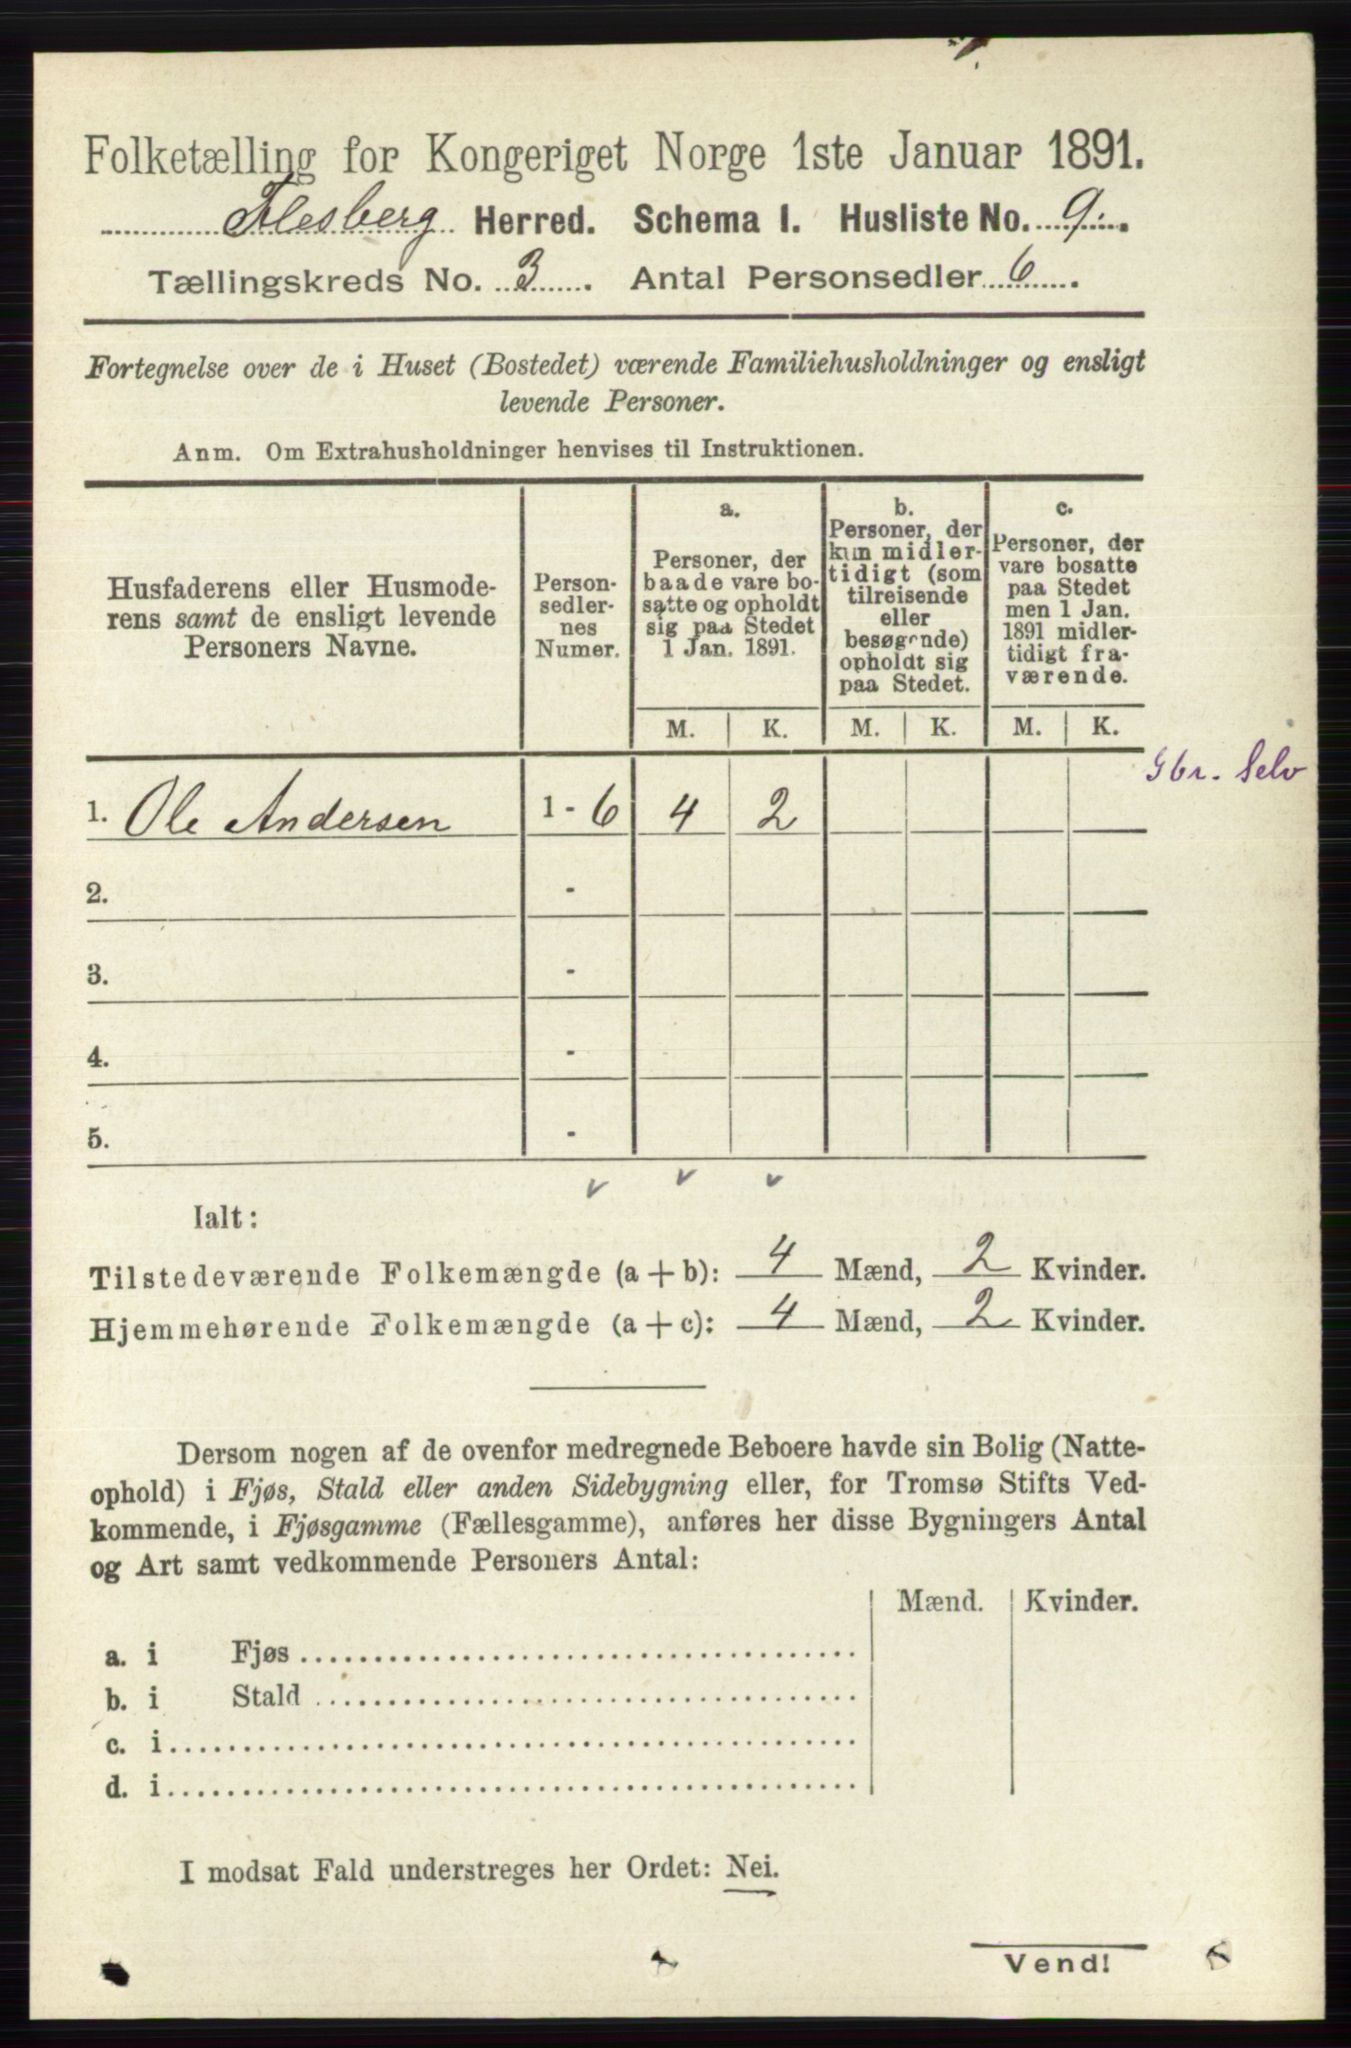 Folketælling for Kongeriget Norge 1ste Januar 1891.
Flesberg Herred. Schema I. Husliste No. 9.
Tællingskreds No. 3. Antal Personsedler 6.
Fortegnelse over de i Huset (Bostedet) værende Familiehusholdninger og ensligt
levende Personer.
Anm. Om Extrahusholdninger henvises til Instruktionen.
Husfaderens eller Husmode-
rens samt de ensligt levende
Personers Navne.
Person-
sedler-
nes
Numer.
a.
Personer, der
baade vare bo-
satte og opholdt
sig paa Stedet
1 Jan. 1891.
b.
Personer, der
kun midler-
tidigt (som
tilreisende
eller
besøgende)
opholdt sig
paa Stedet.
c.
Personer, der
vare bosatte
paa Stedet
men 1 Jan.
1891 midler-
tidigt fra-
værende.
M. K. M. K. M. K.
Gbr. Selv
1. Ole Andersen 1 - 6 4 2
2. -
3. -
4. -
5. -
Ialt:
Tilstedeværende Folkemængde (a + b): 4 Mænd, 2 Kvinder.
Hjemmehørende Folkemængde (a + c): 4 Mænd, 2 Kvinder.
Dersom nogen af de ovenfor medregnede Beboere havde sin Bolig (Natte-
ophold) i Fjøs, Stald eller anden Sidebygning eller, for Tromsø Stifts Ved-
kommende, i Fjøsgamme (Fællesgamme), anføres her disse Bygningers Antal
og Art samt vedkommende Personers Antal:
Mænd. Kvinder.
a. i Fjøs
b. i Stald
c. i
d. i
I modsat Fald understreges her Ordet: Nei.
Vend!